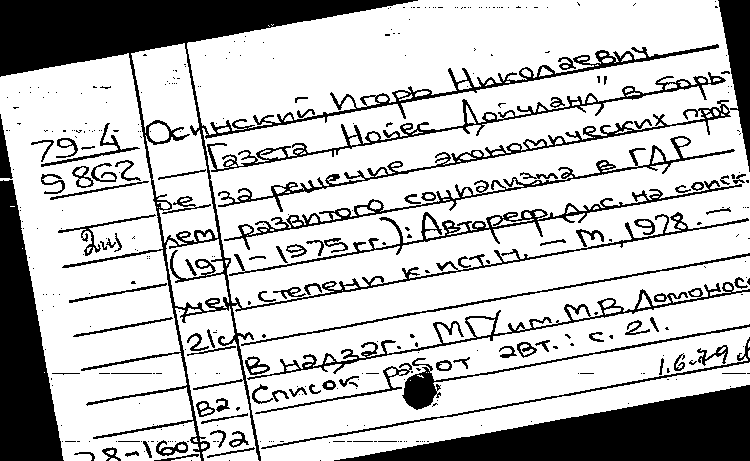 79-4 Осинский, Игорь Николаевич.
9862 Газета „Нойес Дойчланд" в борь-
бе за решение экономических проб-
лем развитого социализма в ГДР
(1971-1975гг.): Автореф. дис. на соиск.
учен. степени к. ист. н. — М., 1978. —
21см.
В надзаг.: МГУ им. М.В. Ломонос
в2. Список работ авт.: с. 21.
1.6.79
78-160572